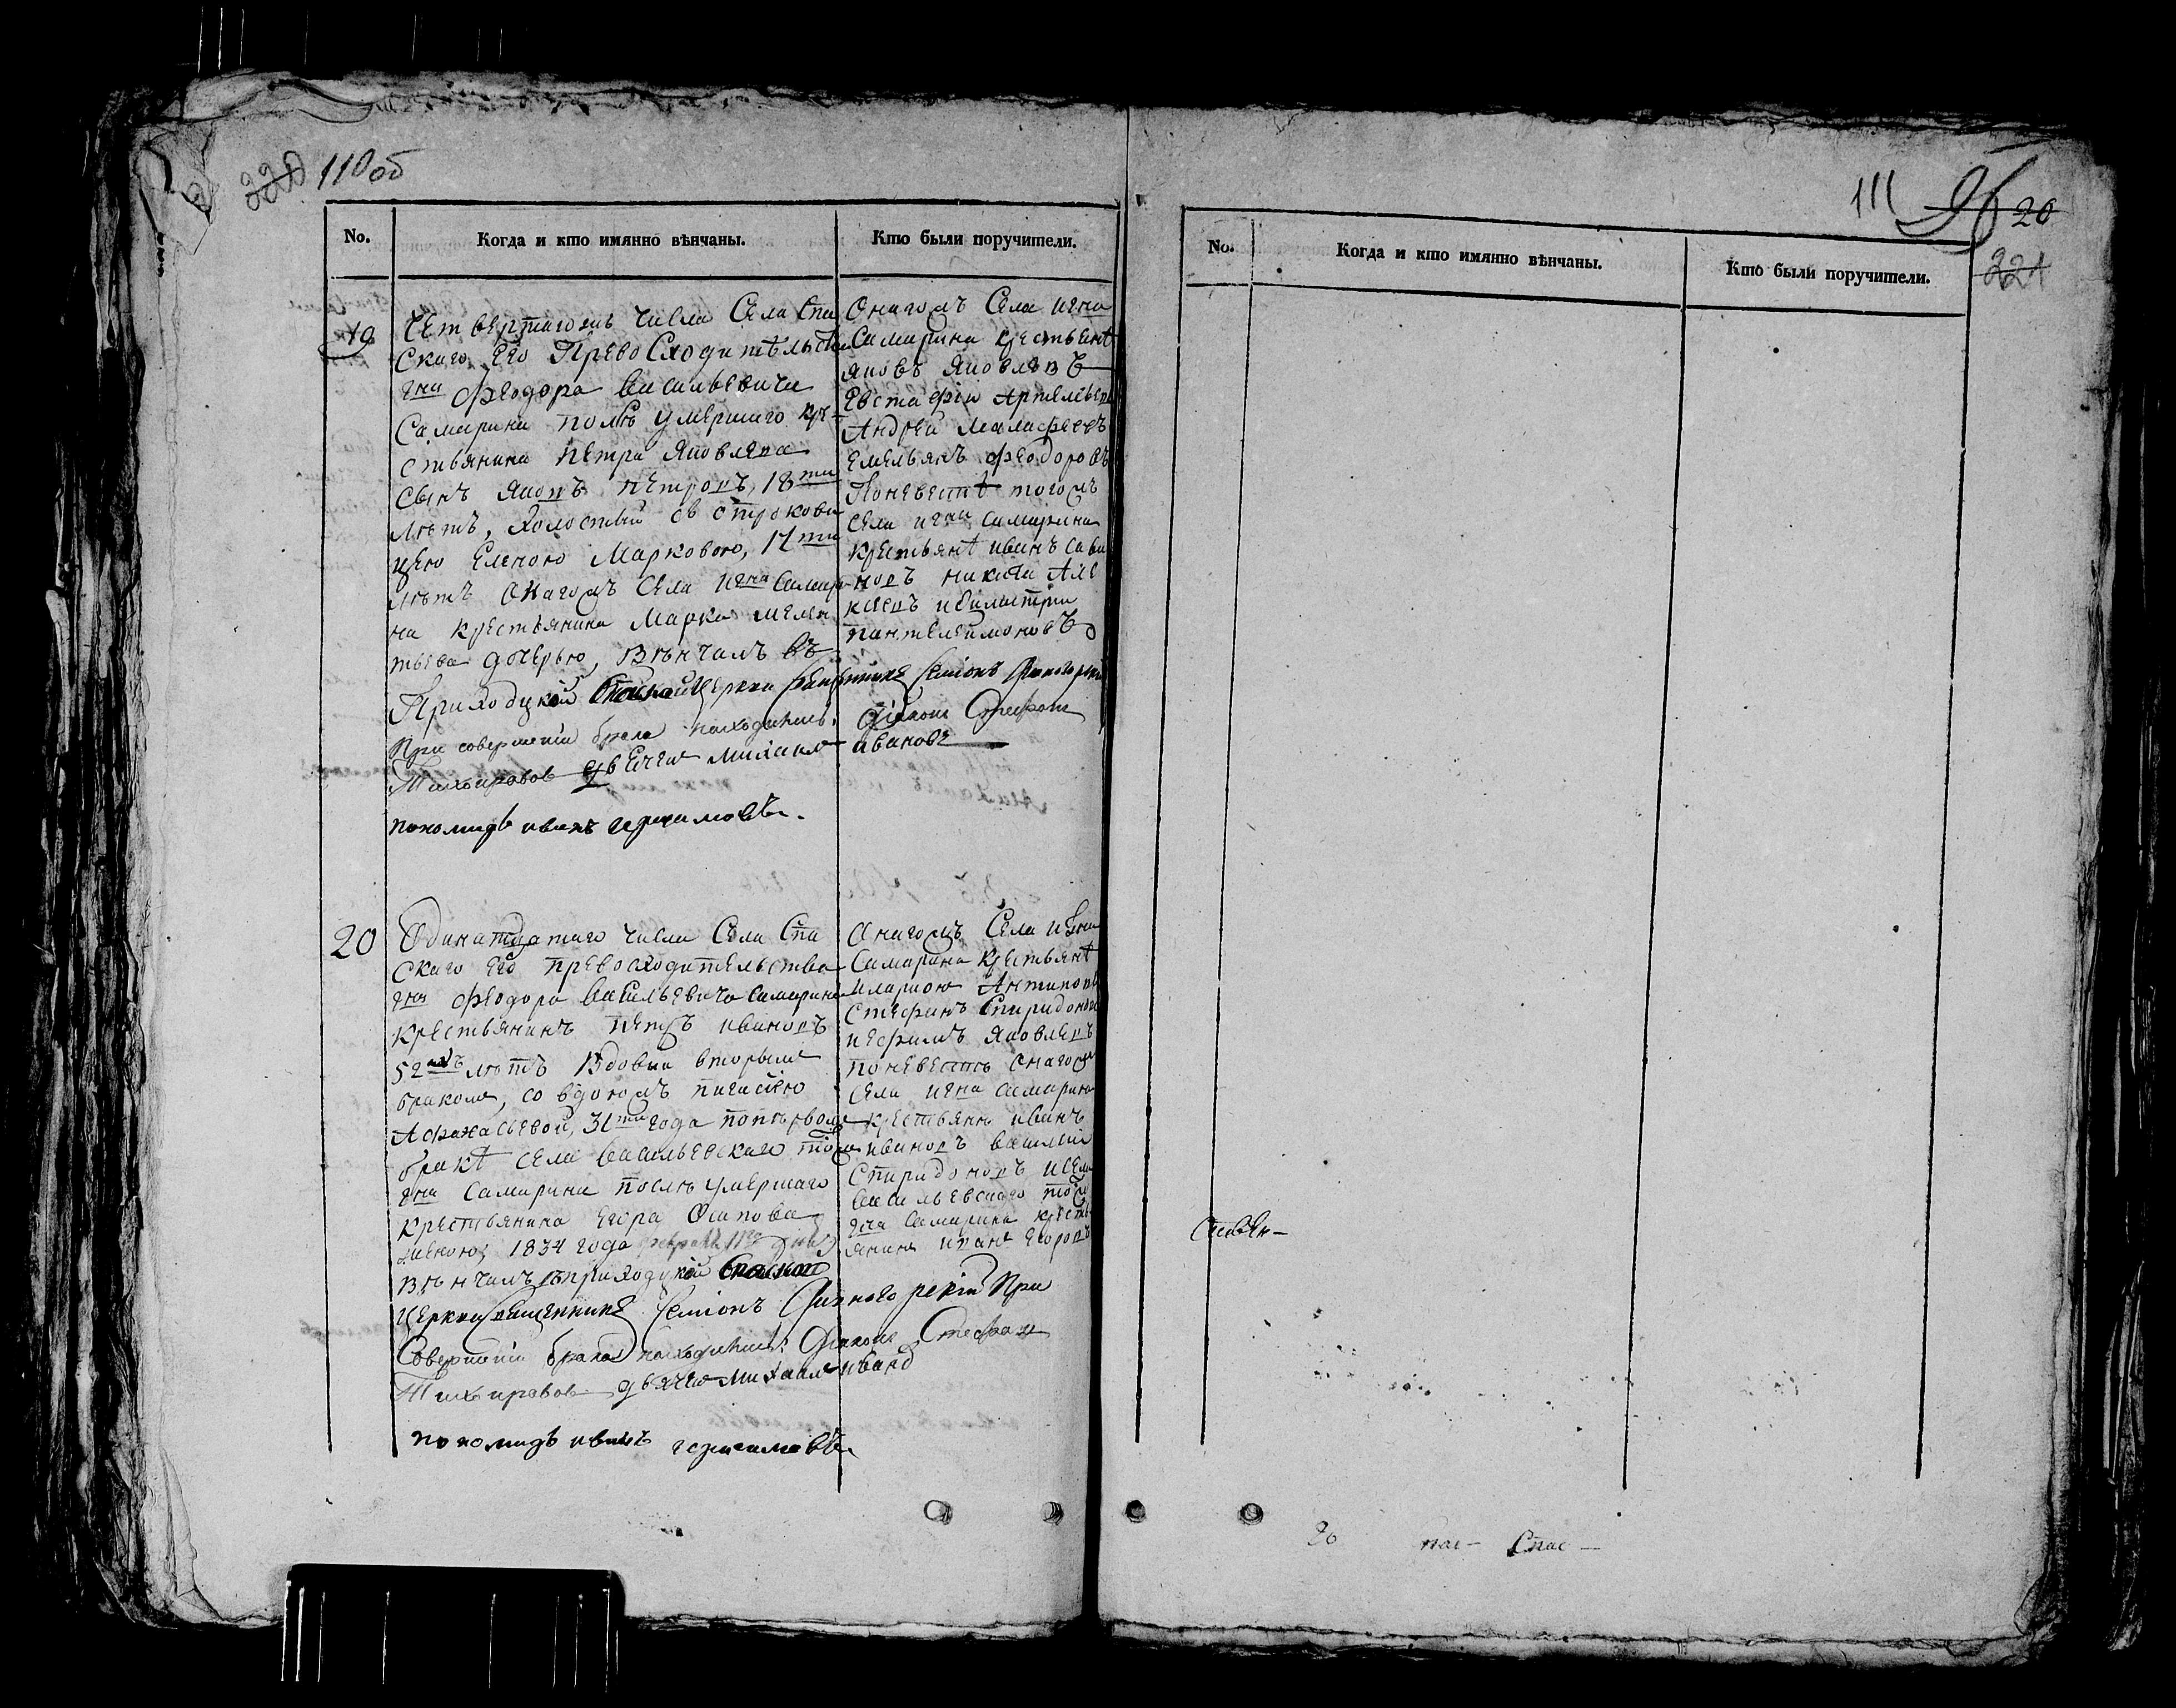 220 110об
No. Когда и кто имянно вѣнчаны. Кто были поручители.
19
Четвертагонъ числа Села Спа
скаго Его Превосходительства
гна Феодора Васильевича
Самарина послѣ умершаго кре
стьянина Петра Яковлева
сынъ Яковъ Петровъ, 18ти
лѣтъ, холостый съ отрокови
цею Еленою Марковою, 17ти
лѣтъ Онагожъ Села и гна Самари
на крестьянина Марка Мелен
тьева дочерью, Вѣнчалъ въ
Приходской Спаской Церкви Священникъ Семіонъ
При совершеніи брака находились: Діаконъ Стефанъ
Тихонравовъ дьячекъ Михаилъ Ивановъ
пономарь иванъ герасимовъ.
Онагожъ Села и гна
Самарина крестьянѣ
Яковъ Яковлевъ
Евстафій Артемьевъ
Андрей Малафеевъ
Емельянъ Феодоровъ
Поневестѣ тогожъ
села и гна Самарина
крестьянѣ иванъ Сава
новъ никита Але
ксѣевъ и Димитрій
пантелеимоновъ
20
Одинатцатаго числа Села Спа
скаго Его превосходительства
гна Феодора Васильевича Самарина
крестьянинъ Петръ ивановъ
52хъ лѣтъ Вдовый вторымъ
бракомъ, со вдовою
Афанасьевой, 31го года попервомъ
бракѣ села Васильевскаго тогожъ
гна Самарина послѣ умершаго
крестьянина Егора Осипова
женою, 1834 года февраля 11го дня
вѣнчалъ въ приходской Спаской
Церкви Священникъ Семіонъ При
Совершеніи брака находились: Діаконъ Стефанъ
Тихонравовъ дьячекъ Михаилъ Иванъ
пономарь иванъ герасимовъ
Онагожъ Села и гна
Самарина крестьянѣ
иларіонъ Антиповъ
Стефанъ Спиридоновъ
и Ефимъ Яковлевъ
поневестѣ Онагожъ
Села и гна Самарина
крестьянѣ иванъ
ивановъ василій
Спиридоновъ и села
Васильевскаго тогожъ
гна Самарина кресть
янинъ иванъ Егоровъ
111 96 20
221
No. Когда и кто имянно вѣнчаны. Кто были поручители.
20 пас- Спас-